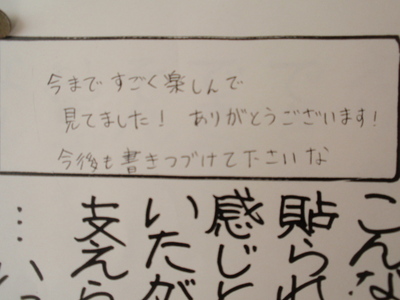 今まですごく楽しんで
見てました！ ありがとうございます！
今後も書きつづけて下さいな
こんな
貼られ
感じと
いたが
支えら
…いっ